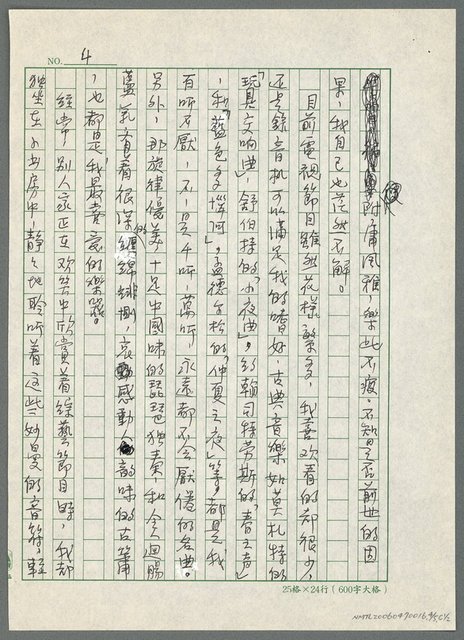 NO. 4
附庸風雅，樂此不疲。不知是否前世的因
果，我自己也茫然不解。
目前電視節目雖然花樣繁多，我喜欢看的却很少，
还是錄音机可以滿足我的嗜好，古典音樂如莫札特的
「玩具交响曲」，舒伯特的「小夜曲」。約翰司特勞斯的「春之声」
，和「藍色多惱河」，孟德尔松的「仲夏之夜」等，都是我
百听不厭，不，是千听，萬听，永遠都不会厭倦的名曲。
另外，那旋律優美，十足中國味的琵琶独奏，和令迴腸
盪氣有着很深的纏綿悱惻，哀感動人韻味的古箏
，也都是我最喜愛的樂器。
經常，别人家正在欢笑中欣賞着綜藝節目時，我却
独坐在小书房中，靜々地聆听着這些妙曼的音符，輕
25格×24行（600字大格）
NMTL20060470016